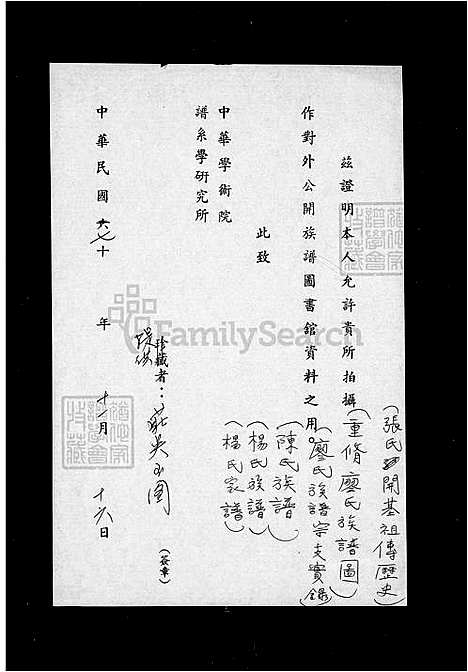 (張氏開基祖傳歷史)
茲證明本人允許貴所拍攝(重脩廖氏族譜圖)
作對外公開族譜圖書館資料之用。(廖氏族譜宗支實錄)
(陳氏族譜)
(楊氏族譜)
(楊氏家譜)
此致
中華學術院
譜系學研究所
珍藏者：
提供
(簽章)
中華民國六七十年十一月十六日
FamilySearch